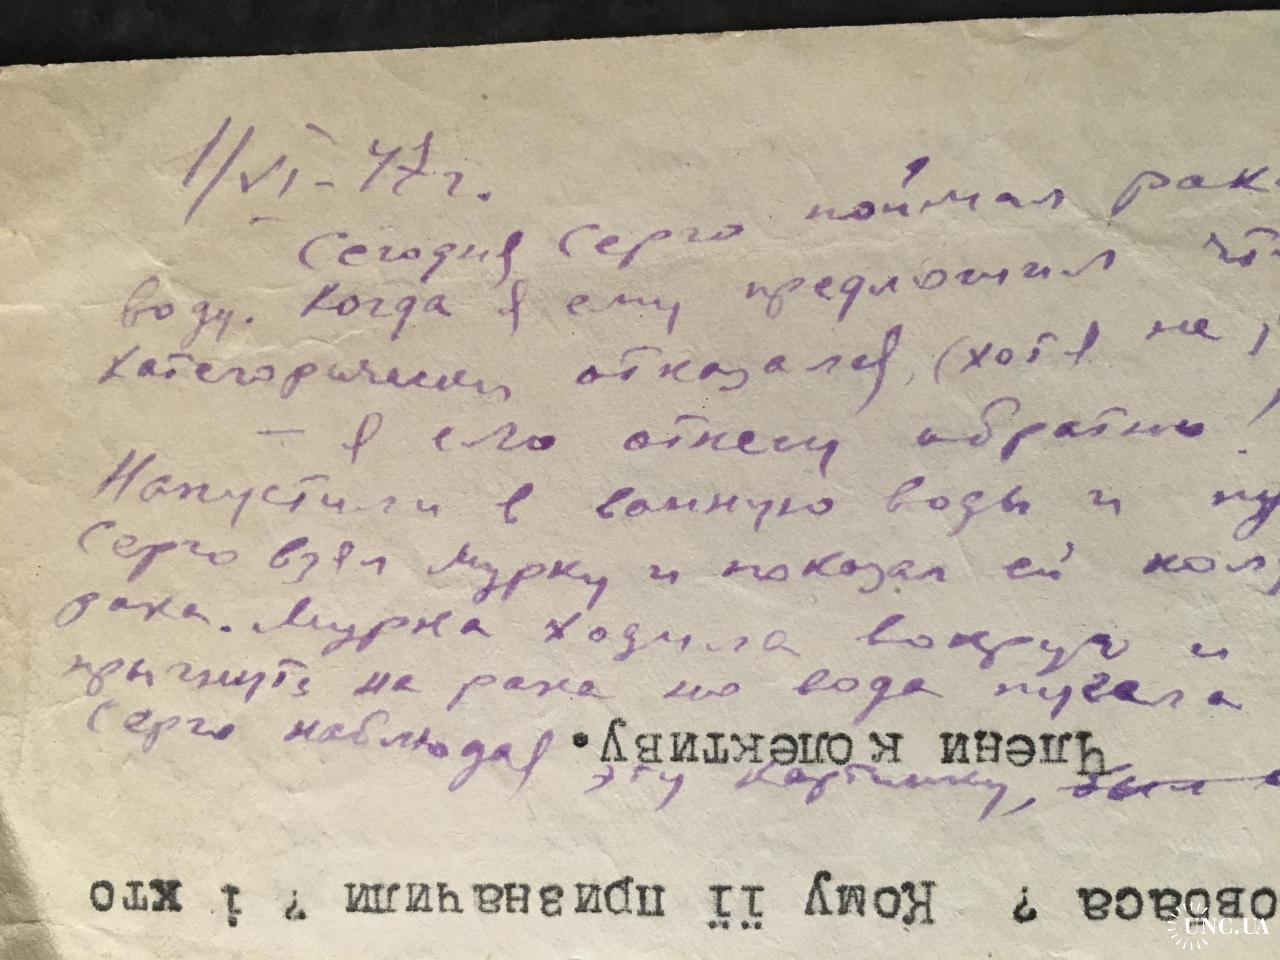 1/VI-47 г.
Сегодня Серго поймал рака
воду. Когда я ему предложил
категорически отказался, (хотя не
— я его отнесу обратно!
Напустили в ванную воды и пу
Серго взял Мурку и показал ей
рака. Мурка ходила вокруг и
прыгнуть на рака но вода пугала
Серго наблюдая эту картинку, был
Члени колективу.
овбаса ? Кому її призначили ? і хто
UNC.UA